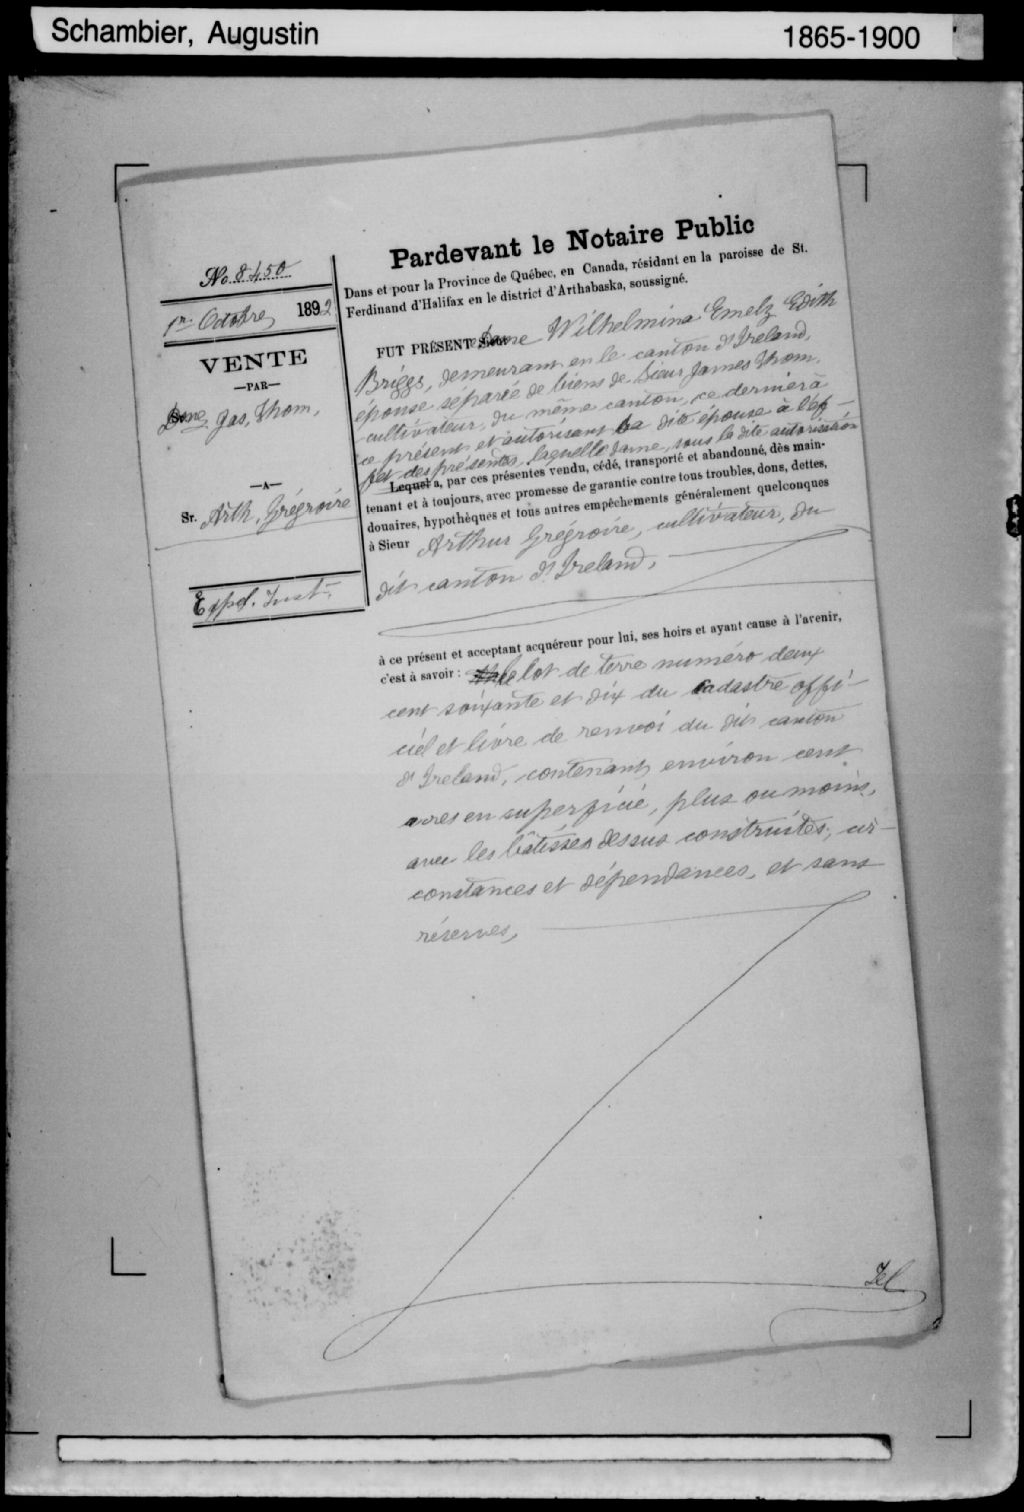 Schambier, Augustin 1865-1900
No. 8450
1er Octobre, 1892
VENTE
—PAR—
Dme Jas, Thom,
—A—
Sr. Arth, Grégroire
Expd. Inst.
Pardevant le Notaire Public
Dans et pour la Province de Québec, en Canada, résidant en la paroisse de St.
Ferdinand d'Halifax en le district d'Arthabaska, soussigné.
FUT PRÉSENT Dame Wilhelmina Emelz Edith
Briggs, demeurant, en le canton d'Ireland,
épouse séparée de biens de Sieur James Thom,
cultivateur, du même canton, ce dernier à
ce présent et autorisant sa dite épouse à l'ef-
fet des présentes, laquelle dame, sous la dite autorisation
Lequel a, par ces présentes vendu, cédé, transporté et abandonné, dès main-
tenant et à toujours, avec promesse de garantie contre tous troubles, dons, dettes,
douaires, hypothèques et tous autres empêchements généralement quelconques
à Sieur Arthur Grégroire, cultivateur, du
dit canton d'Ireland,
à ce présent et acceptant acquéreur pour lui, ses hoirs et ayant cause à l'avenir,
c'est à savoir : le lot de terre numéro deux
cent soixante et dix du cadastre offi-
ciel et livre de renvoi du dit canton
d'Ireland, contenant, environ cent
acres en superficié, plus ou moins,
avec les bâtisses dessus construites, cir-
constances et dépendances, et sans
réserves,